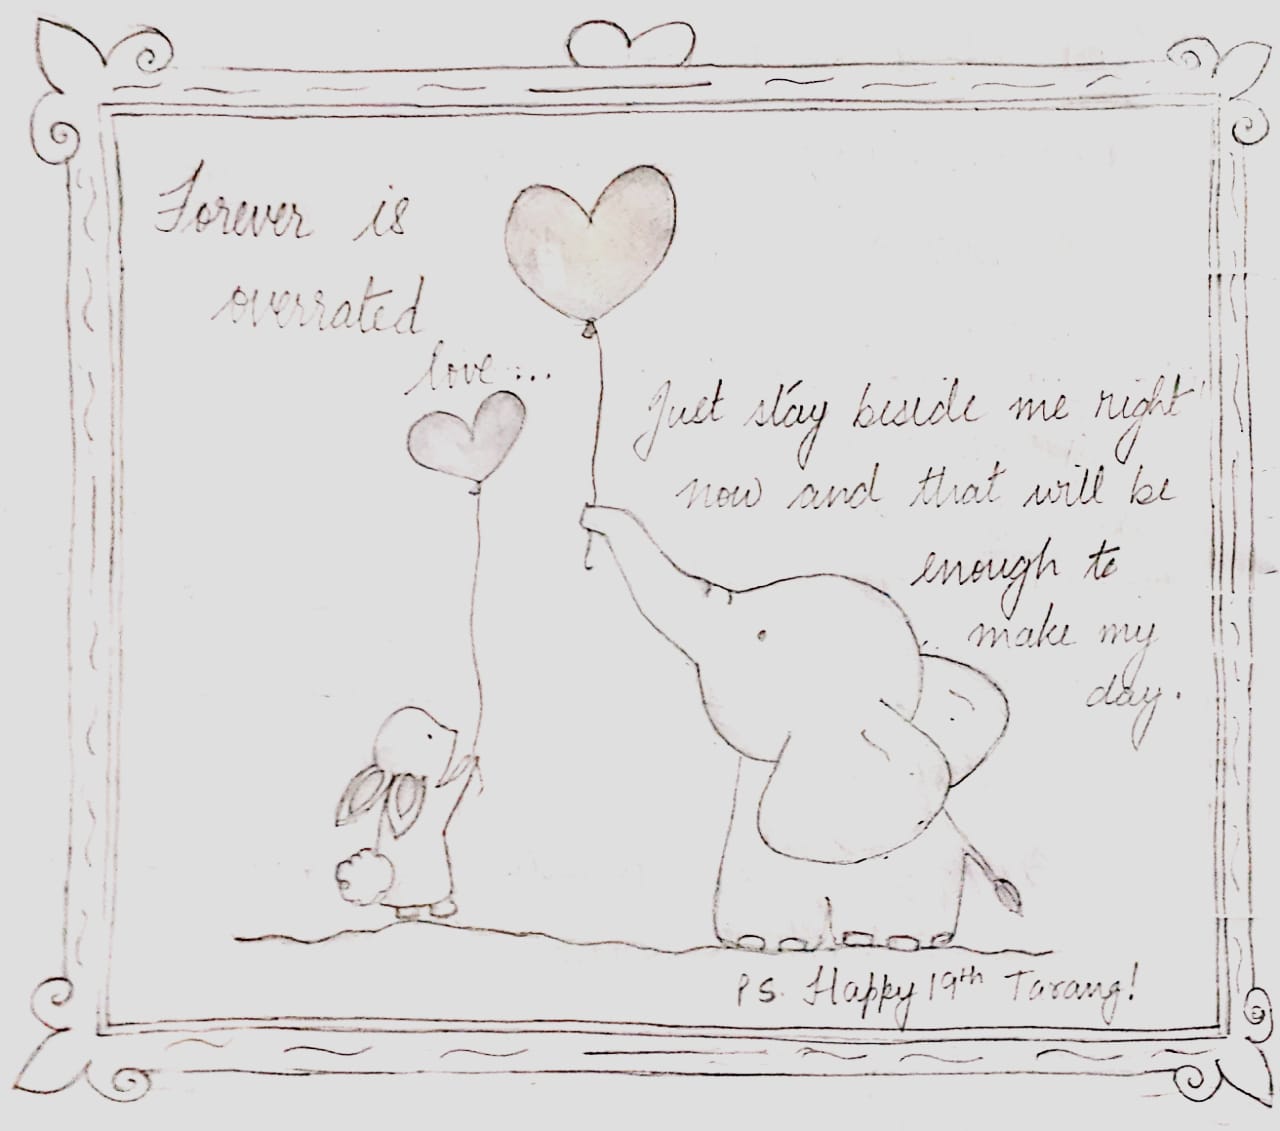 Forever is
overrated
love...
Just stay beside me right
now and that will be
enough to
make my
day.
PS. Happy 19th Tarang!